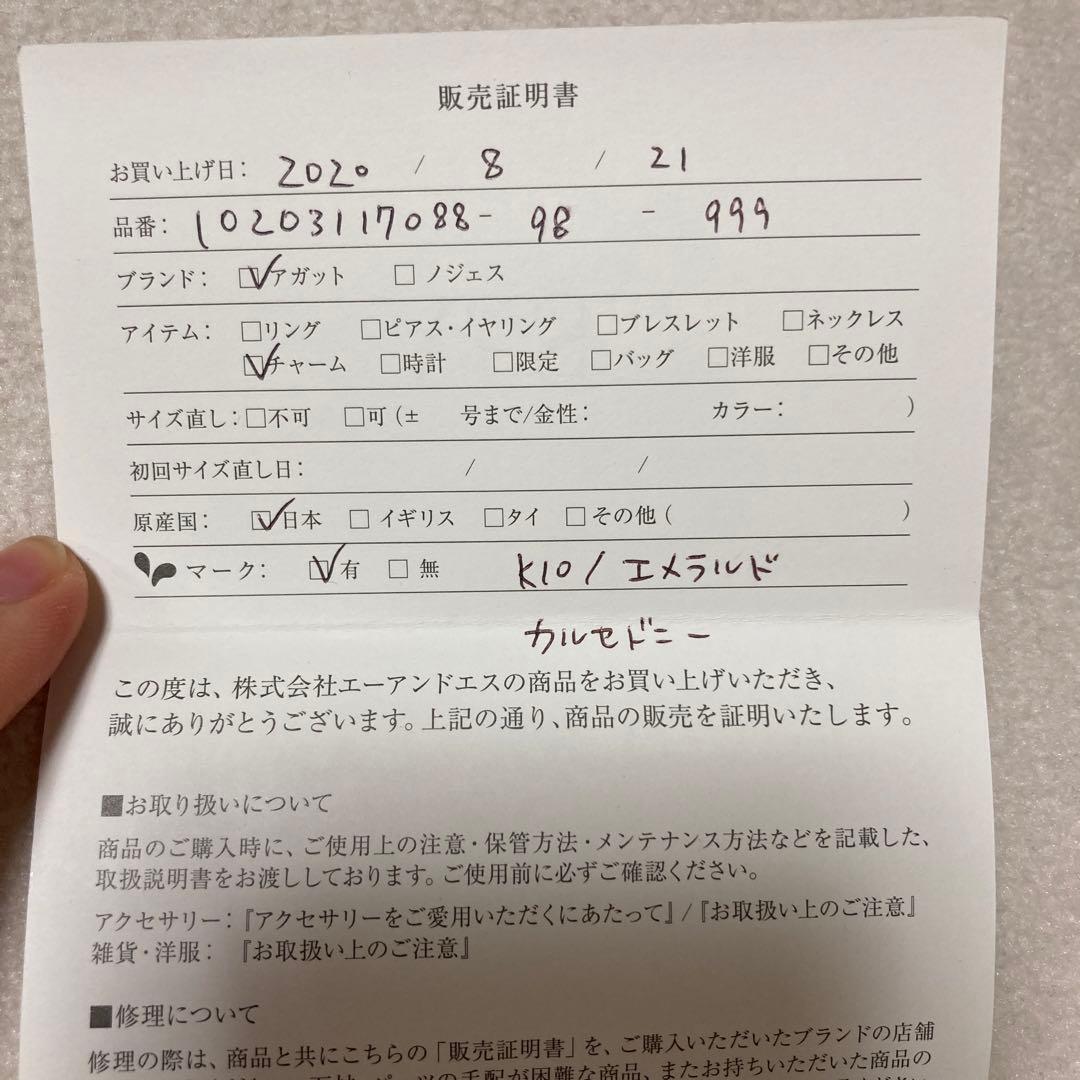 販売証明書
お買い上げ日: 2020 / 8 / 21
品番: 10203117088- 98 - 999
ブランド: ☑アガット □ ノジェス
アイテム: □リング □ピアス・イヤリング □ブレスレット □ネックレス
☑チャーム □時計 □限定 □バッグ □洋服 □その他
サイズ直し: □不可 □可 (± 号まで/金性: カラー: )
初回サイズ直し日: / /
原産国: ☑日本 □ イギリス □タイ □ その他 ( )
マーク: ☑有 □ 無 K10 / エメラルド
カルセドニー
この度は、株式会社エーアンドエスの商品をお買い上げいただき、
誠にありがとうございます。上記の通り、商品の販売を証明いたします。
■お取り扱いについて
商品のご購入時に、ご使用上の注意・保管方法・メンテナンス方法などを記載した、
取扱説明書をお渡ししております。ご使用前に必ずご確認ください。
アクセサリー:『アクセサリーをご愛用いただくにあたって』/『お取扱い上のご注意』
雑貨・洋服: 『お取扱い上のご注意』
■修理について
修理の際は、商品と共にこちらの「販売証明書」を、ご購入いただいたブランドの店舗
パーツの手配が困難な商品、またお持ちいただいた商品の